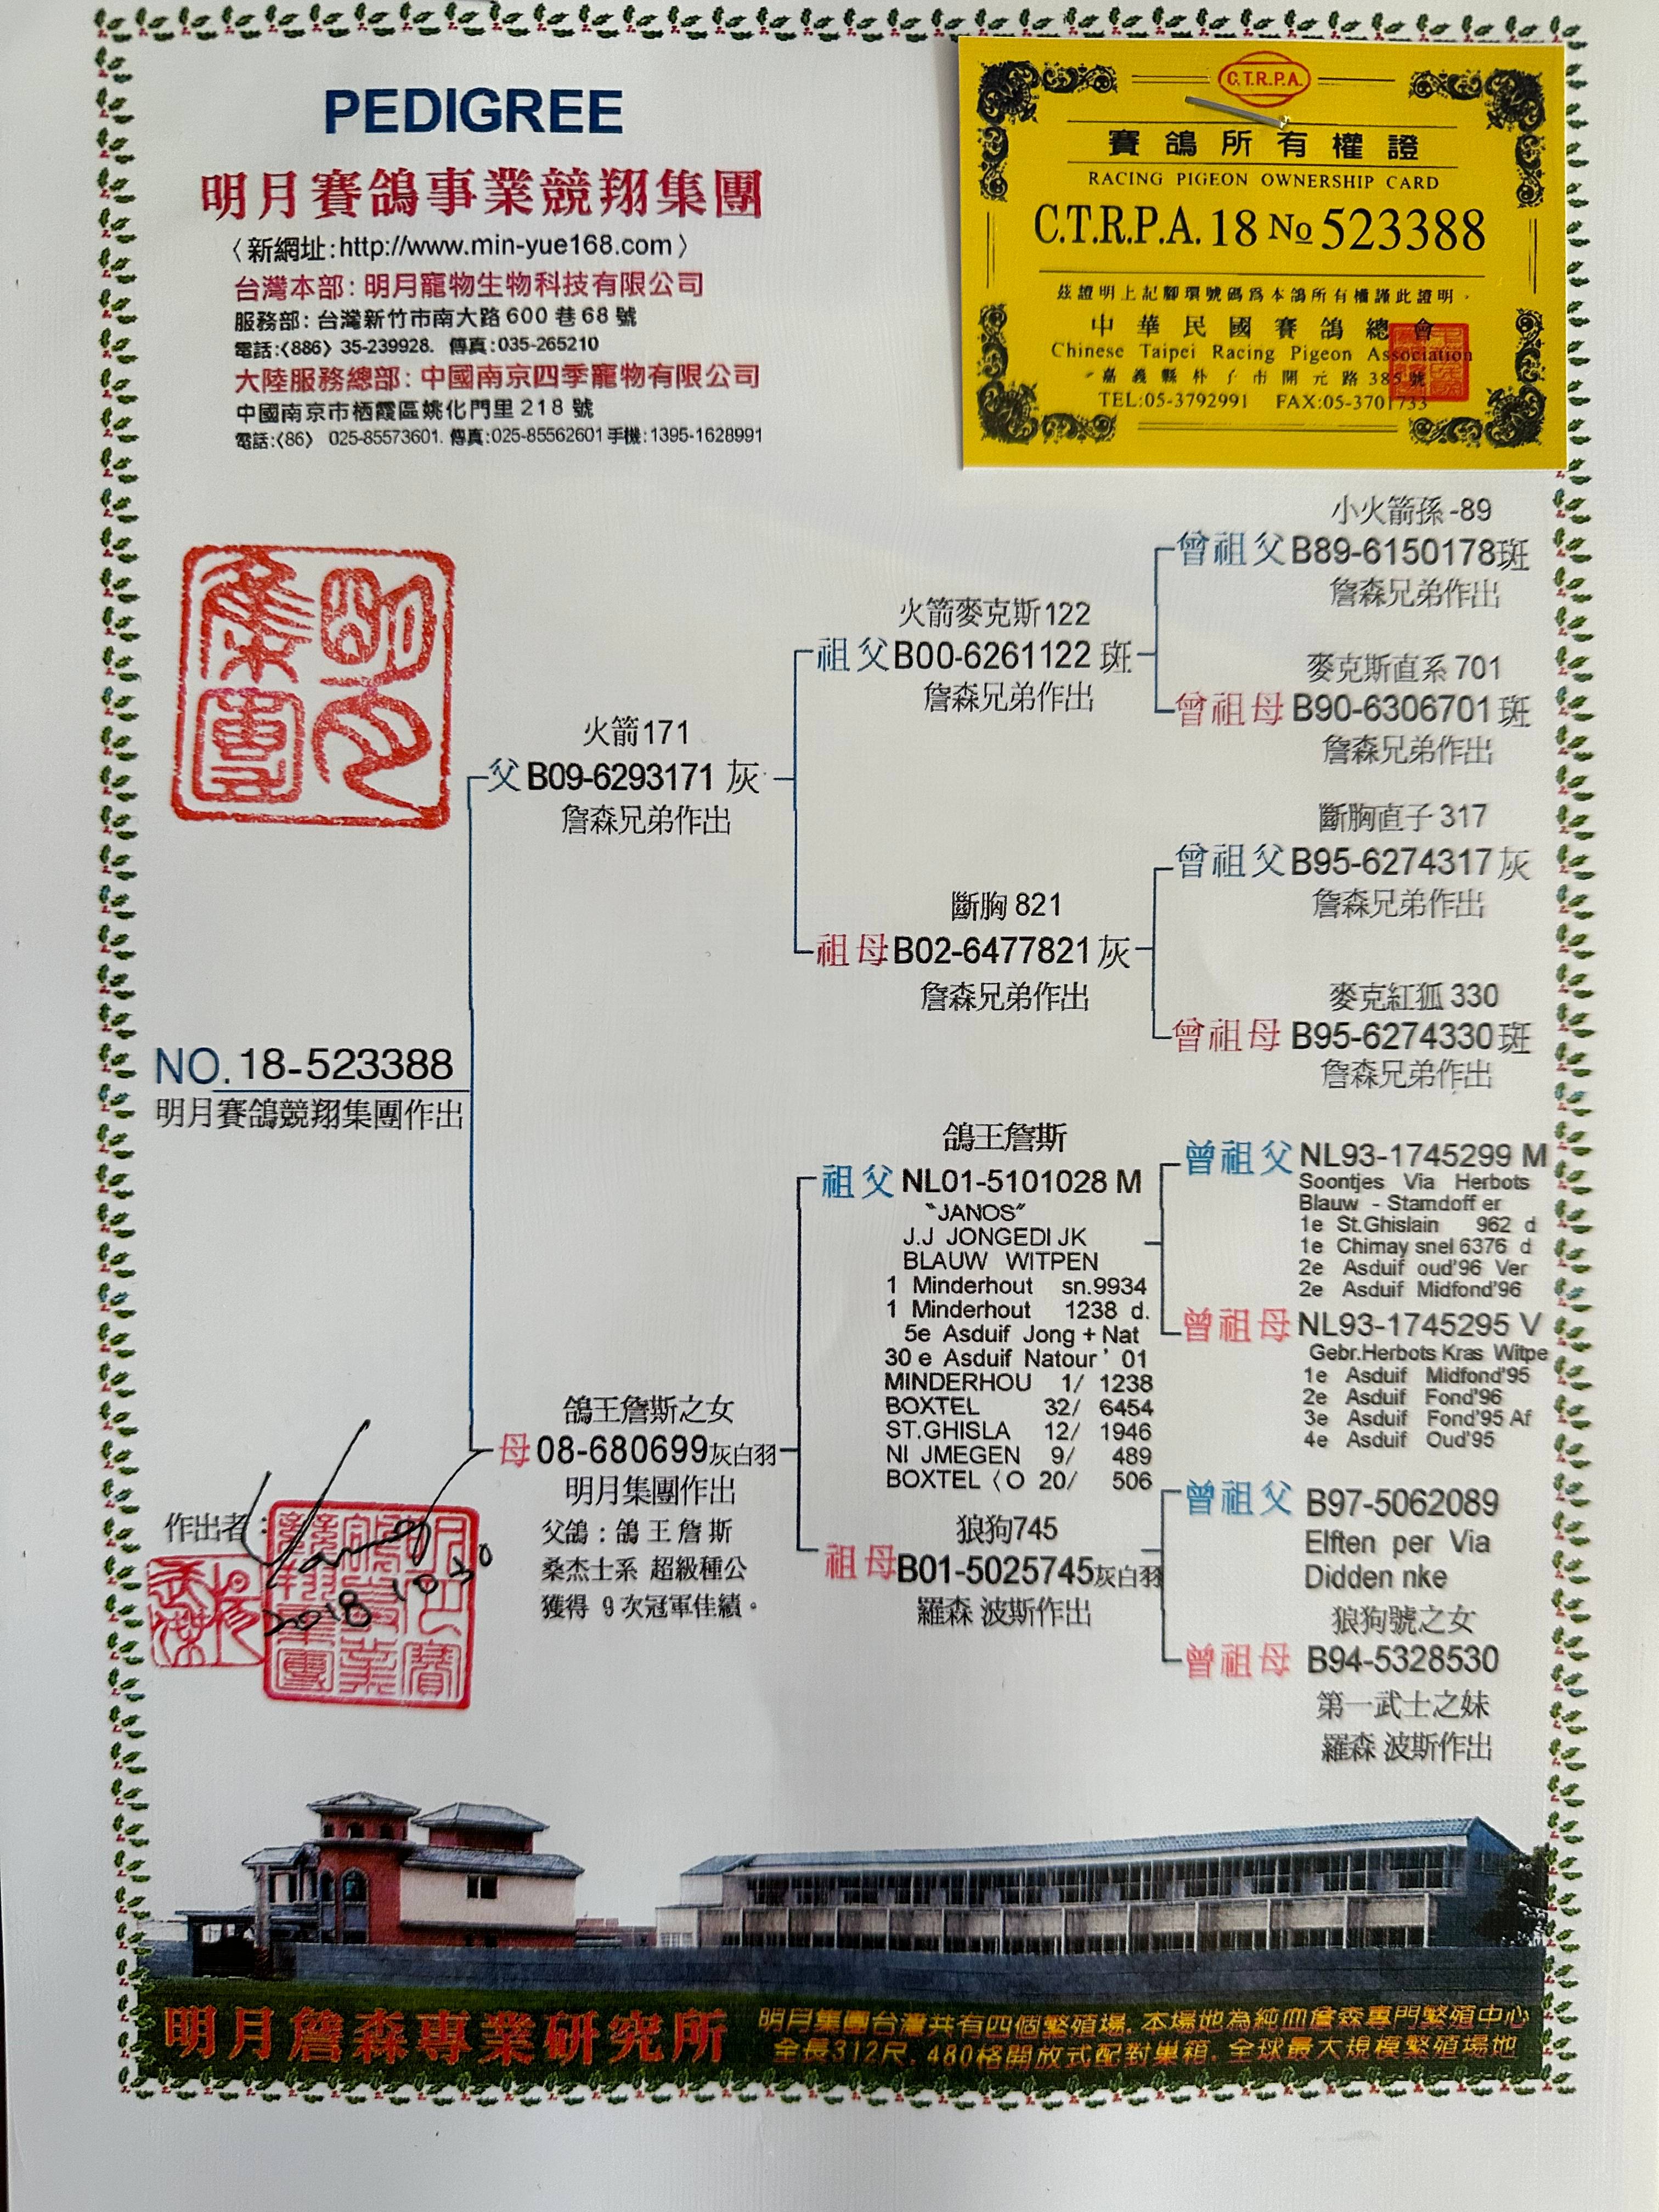 PEDIGREE
明月賽鴿事業競翔集團
〈新網址:http://www.min-yue168.com〉
台灣本部:明月寵物生物科技有限公司
服務部:台灣新竹市南大路600巷68號
電話:〈886〉35-239928. 傳真:035-265210
大陸服務總部:中國南京四季寵物有限公司
中國南京市栖霞區姚化門里218號
電話:〈86〉 025-85573601. 傳真:025-85562601手機:1395-1628991
C.T.R.P.A.
賽鴿所有權證
RACING PIGEON OWNERSHIP CARD
C.T.R.P.A. 18 No 523388
茲證明上記腳環號碼爲本鴿所有權謹此證明。
中華民國賽鴿總會
Chinese Taipei Racing Pigeon Association
嘉義縣朴子市開元路385號
TEL:05-3792991 FAX:05-3701733
明月集團
NO. 18-523388
明月賽鴿競翔集團作出
火箭171
父 B09-6293171 灰
詹森兄弟作出
火箭麥克斯122
祖父 B00-6261122 斑
詹森兄弟作出
小火箭孫-89
曾祖父 B89-6150178斑
詹森兄弟作出
麥克斯直系701
曾祖母 B90-6306701斑
詹森兄弟作出
斷胸821
祖母 B02-6477821 灰
詹森兄弟作出
斷胸直子317
曾祖父 B95-6274317灰
詹森兄弟作出
麥克紅狐330
曾祖母 B95-6274330斑
詹森兄弟作出
鴿王詹斯之女
母 08-680699灰白羽
明月集團作出
父鴿:鴿王詹斯
桑杰士系 超級種公
獲得 9次冠軍佳績。
鴿王詹斯
祖父 NL01-5101028 M
"JANOS"
J.J JONGEDI JK
BLAUW WITPEN
1 Minderhout sn.9934
1 Minderhout 1238 d.
5e Asduif Jong + Nat
30 e Asduif Natour' 01
MINDERHOU 1/ 1238
BOXTEL 32/ 6454
ST.GHISLA 12/ 1946
NI JMEGEN 9/ 489
BOXTEL〈O 20/ 506
曾祖父 NL93-1745299 M
Soontjes Via Herbots
Blauw - Stamdoff er
1e St.Ghislain 962 d
1e Chimay snel 6376 d
2e Asduif oud'96 Ver
2e Asduif Midfond'96
曾祖母 NL93-1745295 V
Gebr.Herbots Kras Witpe
1e Asduif Midfond'95
2e Asduif Fond'96
3e Asduif Fond'95 Af
4e Asduif Oud'95
狼狗745
祖母 B01-5025745灰白羽
羅森 波斯作出
曾祖父 B97-5062089
Elften per Via
Didden nke
狼狗號之女
曾祖母 B94-5328530
第一武士之妹
羅森 波斯作出
作出者:
2018 10 30
明月詹森專業研究所
明月集團台灣共有四個繁殖場,本場地為純血詹森專門繁殖中心
全長312尺,480格開放式配對巢箱,全球最大規模繁殖場地